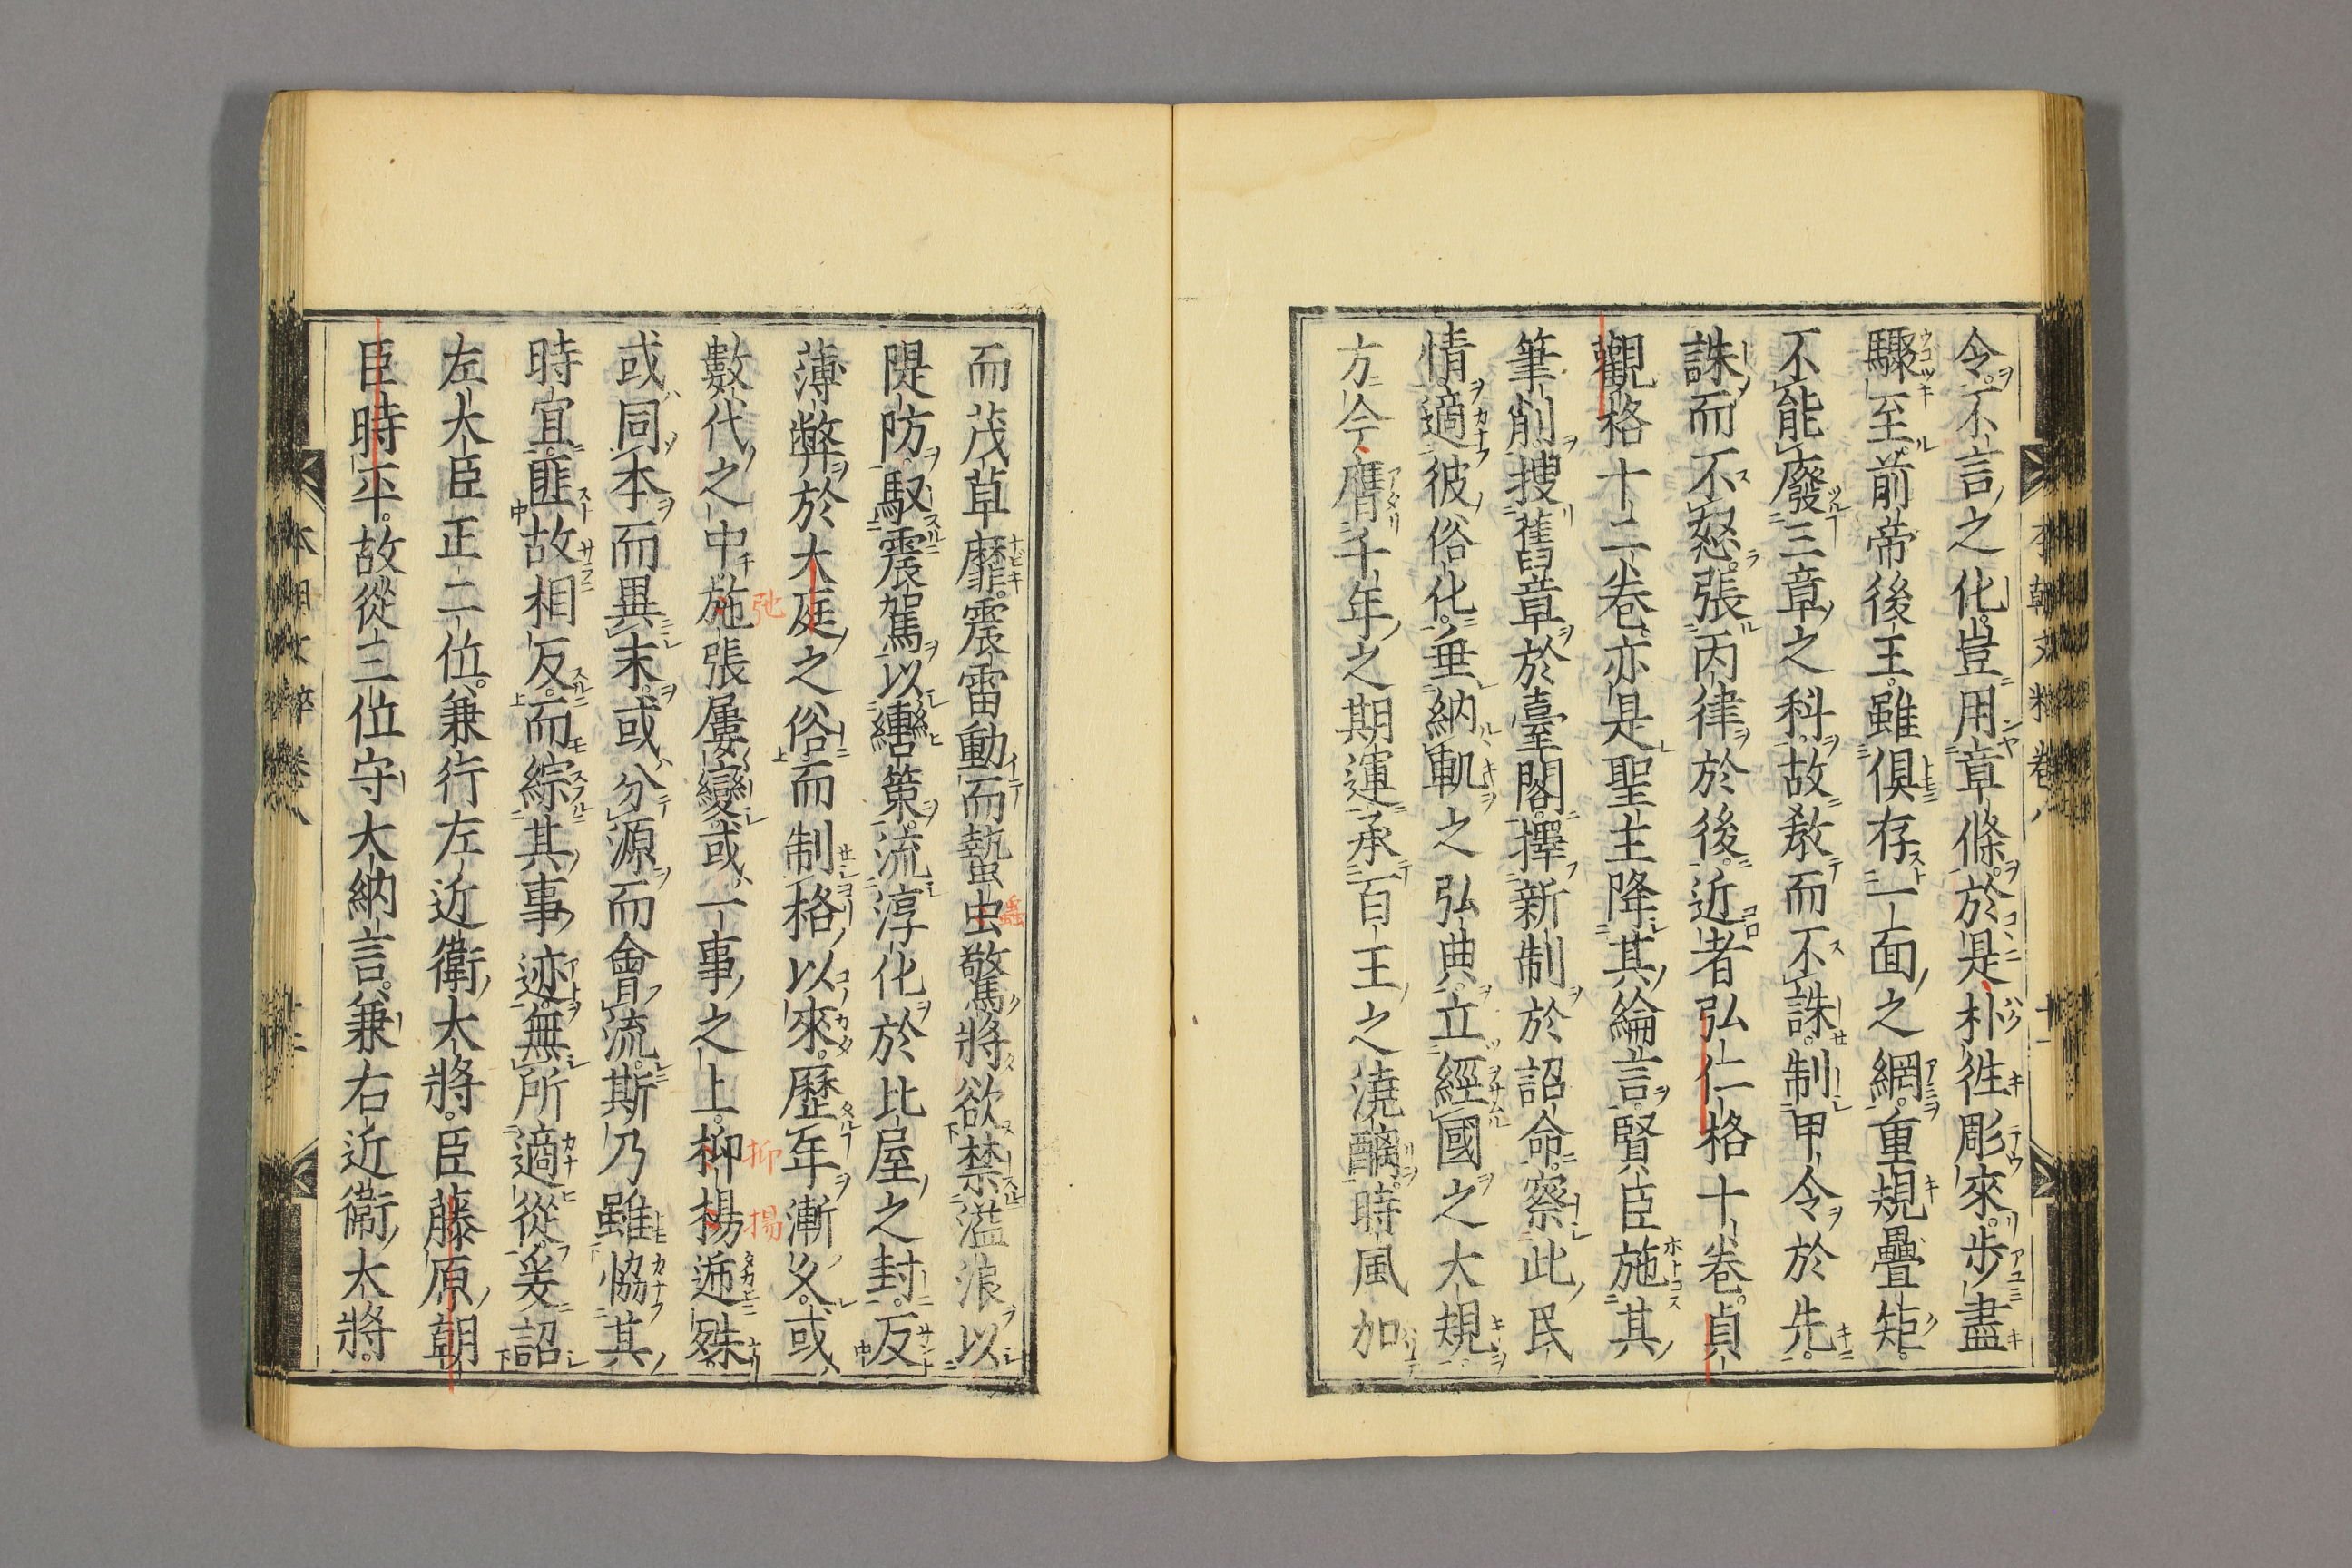 令不言之化豈用章條於是朴徃彫來步盡
驟至前帝後王雖俱存一面之網重規疊矩
不能廢三章之科故敎而不誅制甲令於先
誅而不怒張丙律於後近者弘仁格十卷貞
觀格十二卷亦是聖主降其綸言賢臣施其
筆削搜舊章於臺閣擇新制於詔命察此民
情適彼俗化垂納軌之弘典立經國之大規
方今膺千年之期運承百王之澆醨時風加
而茂草靡震雷動而蟄虫驚將欲禁濫浪以
隄防馭震駕以轡策流淳化於比屋之封反
薄弊於大庭之俗而制格以來歷年漸久或
數代之中施張屢變或一事之上抑揚遞殊
或同本而異末或分源而會流斯乃雖恊其
時宜匪故相反而綜其事迹無所適從爰詔
左大臣正二位兼行左近衛大將臣藤原朝
臣時平故從三位守大納言兼右近衛大將
蟲
弛
抑
揚
本朝文粹卷八
十二